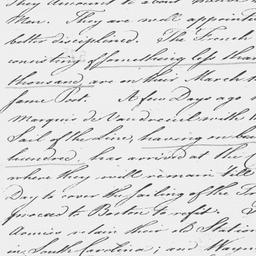 They amount to about
Men. They are well appointed
better disciplined. The French
consisting of something less than
thousand, are on their March
same Post. A few Days ago
Marquis de Vaudreuil with
Sail of the Line, having on
hundred has arrived at the
where they will remain till
Day to cover the sailing of the
proceed to Boston to refit.
Armies retain their old Station
in South Carolina; and Wayne